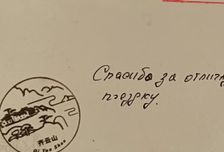 Спасибо за отличн
поездку.
齐云山
Qi Yun Shan